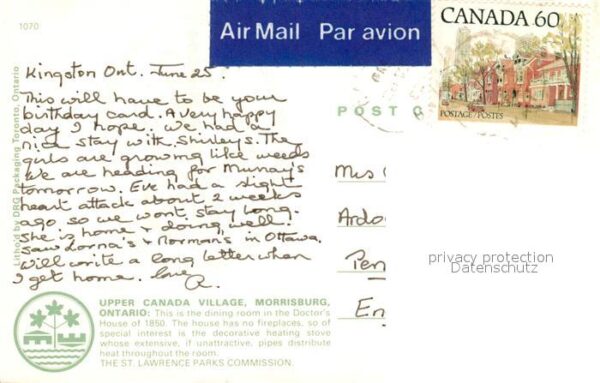 1070
Air Mail Par avion
CANADA 60
POSTAGE/POSTES
Kingston Ont. June 25.
This will have to be your
birthday card. A very happy
day I hope. We had a
nice stay with Shirley's. The
girls are growing like weeds
We are heading for Murray's
tomorrow. Eve had a slight
heart attack about 2 weeks
ago so we won't stay long.
She is home & doing well.
Saw Lorna's & Norman's in Ottawa.
Will write a long letter when
I get home. Love
R.
POST C
Mrs
Ardo
Pen
En
privacy protection
Datenschutz
Litho'd by DRG Packaging Toronto, Ontario
UPPER CANADA VILLAGE, MORRISBURG,
ONTARIO: This is the dining room in the Doctor's
House of 1850. The house has no fireplaces, so of
special interest is the decorative heating stove
whose extensive, if unattractive, pipes distribute
heat throughout the room.
THE ST. LAWRENCE PARKS COMMISSION.